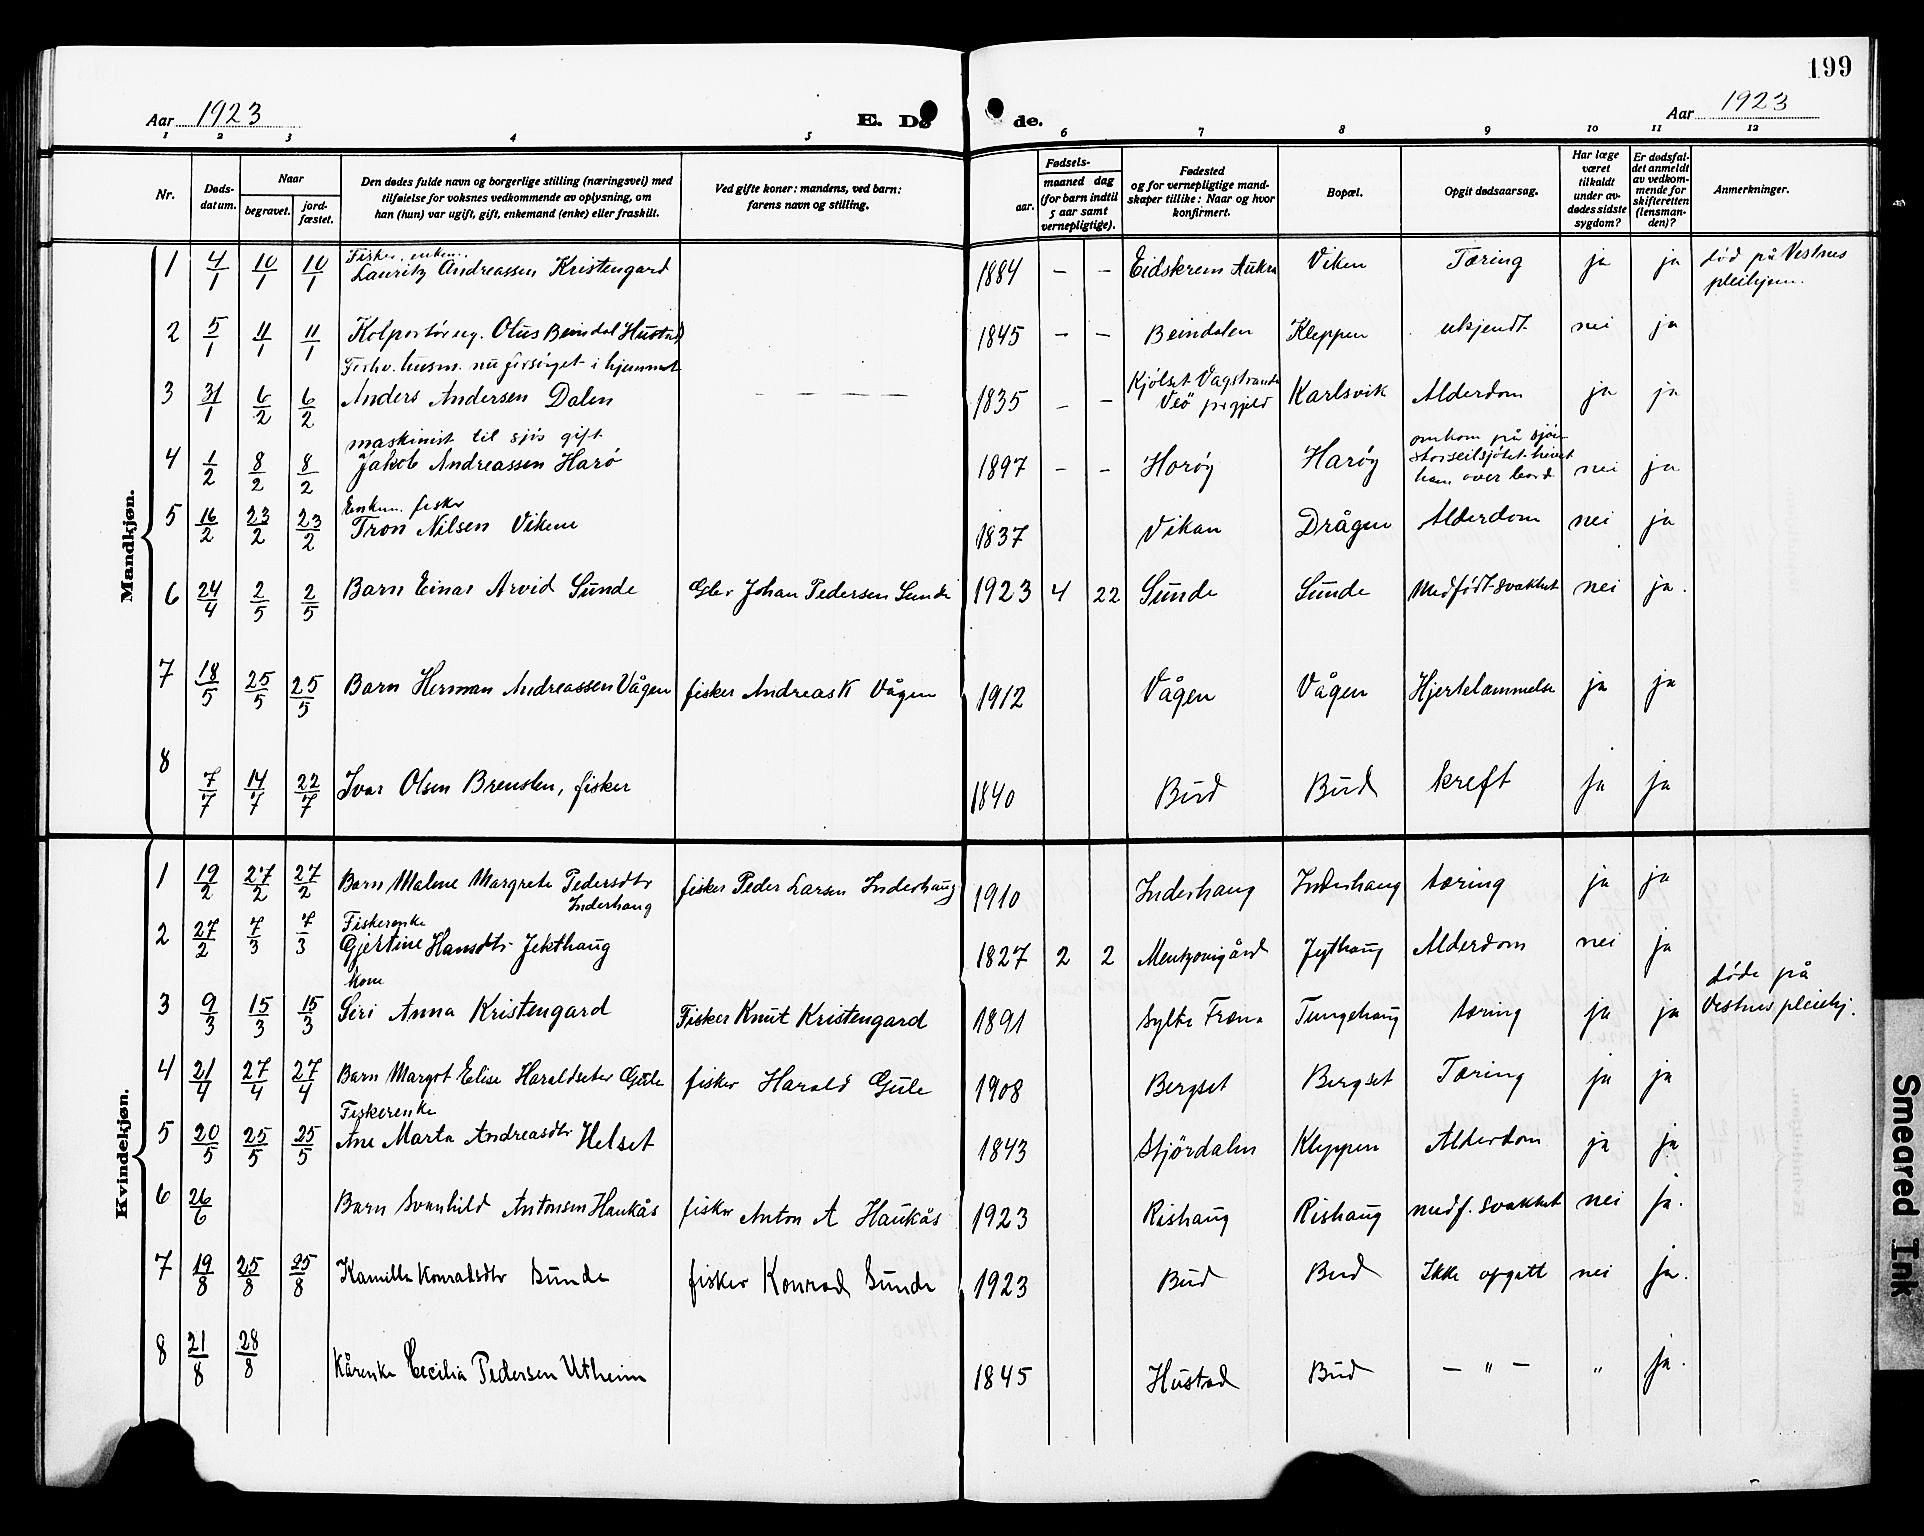 199
Aar 1923
E. Dø de.
Aar 1923
1 2 3 4 5 6 7 8 9 10 11 12
Nr.
Døds-
datum.
Naar
begravet.
jord-
fæstet.
Den dødes fulde navn og borgerlige stilling (næringsvei) med
tilføielse for voksnes vedkommende av oplysning, om
han (hun) var ugift, gift, enkemand (enke) eller fraskilt.
Ved gifte koner: mandens, ved barn:
farens navn og stilling.
Fødsels-
aar.
maaned dag
(for barn indtil
5 aar samt
vernepligtige).
Fødested
og for vernepligtige mand-
skaper tillike: Naar og hvor
konfirmert.
Bopæl.
Opgit dødsaarsag.
Har læge
været
tilkaldt
under av-
dødes sidste
sygdom?
Er dødsfal-
det anmeldt
av vedkom-
mende for
skifteretten
(lensman-
den)?
Anmerkninger.
Mandkjøn.
Fisker, enkem.
1 4/1 10/1 10/1 Lauritz Andreassen Kristengard 1884 – – Eidskrem Aukra Viken Tæring ja ja død på Vestnes
pleihjem.
2 5/1 11/1 11/1 Kolportør ug. Olus Beindal Hustad 1845 – – Beindalen Kleppen ukjendt nei ja
Forhv. husm. nu forsørget i hjemmet
3 31/1 6/2 6/2 Anders Andersen Dalen – – – – 1835 – – Kjølset Vagstranda
Veö prgjeld Karlsvik Alderdom ja ja
maskinist til sjøs gift
4 1/2 8/2 8/2 Jakob Andreassen Harø 1897 – – Harøy Harøy omkom på sjøen
storseilsjøtet hivet
ham over bord nei ja
Enkem. fisker
5 16/2 23/2 23/2 Tron Nilsen Vikene 1837 Vikan Drågen Alderdom nei ja
6 24/4 2/5 2/5 Barn Einar Arvid Sunde Gbr Johan Pedersen Sunde 1923 4 22 Sunde Sunde Medfødt svakhet nei ja.
7 18/5 25/5 25/5 Barn Herman Andreassen Vågen fisker Andreas K Vågen 1912 Vågen Vågen Hjertelammelse ja ja
8 7/7 14/7 22/7 Ivar Olsen Brensten, fisker 1840 Bud Bud kreft ja ja
Kvindekjøn.
1 19/2 27/2 27/2 Barn Malene Margrete Pedersdtr
Inderhaug fisker Peder Larsen Inderhaug 1910 Inderhaug Inderhaug tæring ja ja
Fiskerenke
2 27/2 7/3 7/3 Gjertine Hansdtr Jekthaug 1827 2 2 Mentzonigård Jegthaug Alderdom nei ja
kone
3 9/3 15/3 15/3 Siri Anna Kristengard Fisker Knut Kristengard 1891 Sylte Fræna Tungehaug tæring ja ja døde på
Vestnes pleiehj.
4 21/4 27/4 27/4 Barn Margot Elise Haraldseter Gule fisker Harald Gule 1908 Bergset Bergset Tæring ja ja
Fiskerenke
5 20/5 25/5 25/5 Ane Marta Andreasdtr Helset 1843 Stjørdalen Kleppen Alderdom ja ja
6 26/6 Barn Svanhild Antonsen Haukås fisker Anton A Haukås 1923 Rishaug Rishaug medf. svakhet nei ja.
7 19/8 25/8 25/8 Kamilla Konradsdtr Sunde fisker Konrad Sunde 1923 Bud Bud Ikke opgitt nei ja.
8 21/8 28/8 Kårenke Cecilia Pedersen Utheim 1845 Hustad Bud – " – " ja.
Smeared Ink